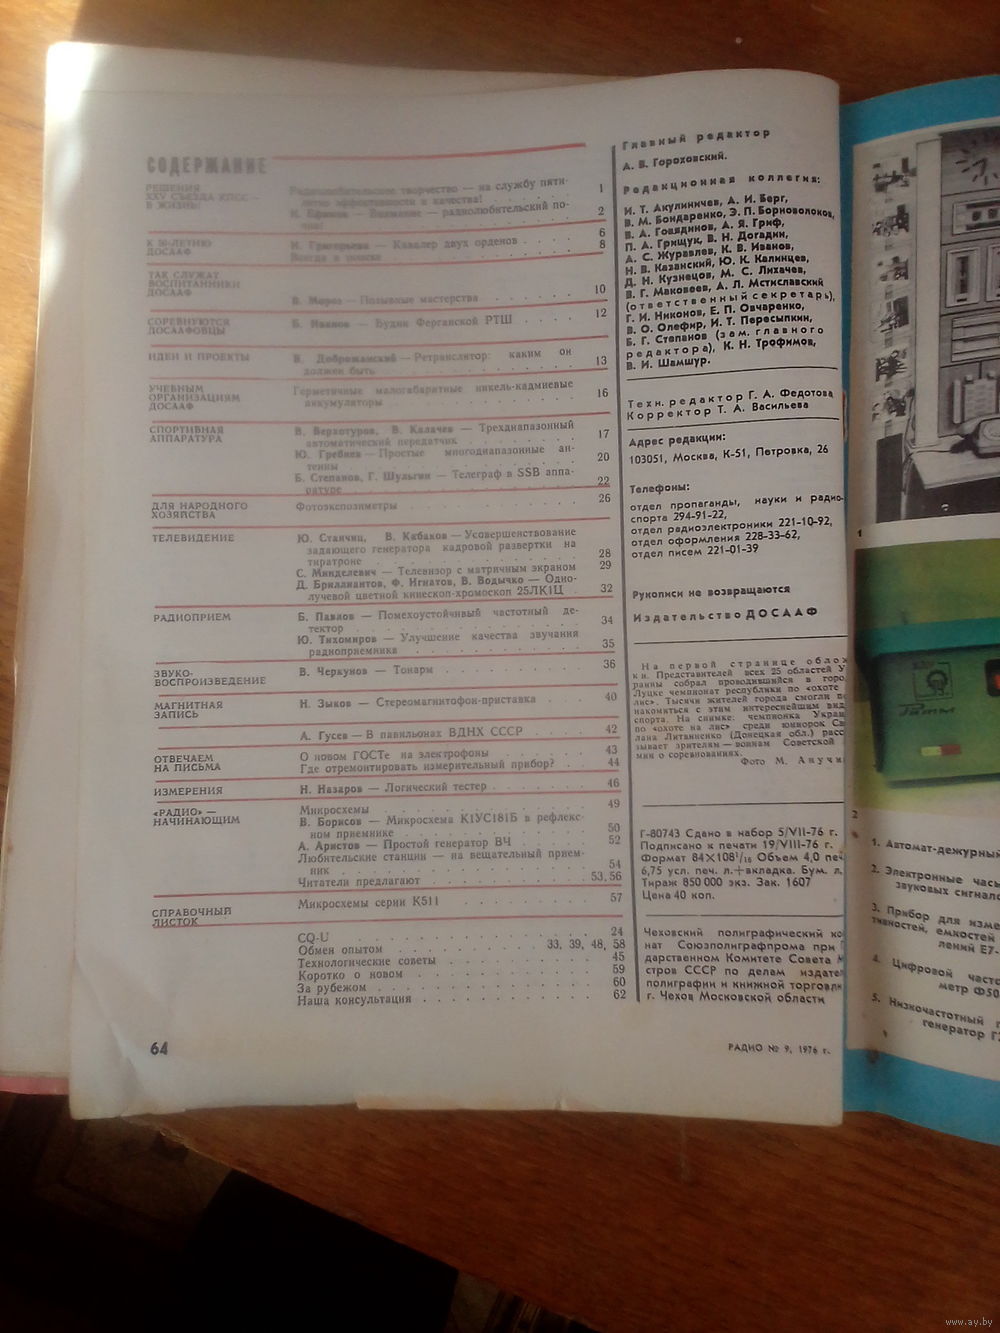 СОДЕРЖАНИЕ
РЕШЕНИЯ
XXV СЪЕЗДА КПСС —
В ЖИЗНЬ!
Радиолюбительское творчество — на службу пяти-
летке эффективности и качества! 1
Н. Ефимов — Внимание — радиолюбительский по-
иск! 2
6
К 50-ЛЕТИЮ
ДОСААФ
Н. Григорьева — Кавалер двух орденов 8
Всегда в поиске
ТАК СЛУЖАТ
ВОСПИТАННИКИ
ДОСААФ
В. Мороз — Позывные мастерства 10
СОРЕВНУЮТСЯ
ДОСААФОВЦЫ
Б. Иванов — Будни Ферганской РТШ 12
ИДЕИ И ПРОЕКТЫ
В. Доброжанский — Ретранслятор: каким он
должен быть 13
УЧЕБНЫМ
ОРГАНИЗАЦИЯМ
ДОСААФ
Герметичные малогабаритные никель-кадмиевые
аккумуляторы 16
СПОРТИВНАЯ
АППАРАТУРА
В. Верхотуров, В. Калачев — Трехдиапазонный
автоматический передатчик 17
Ю. Гребнев — Простые многодиапазонные ан-
тенны 20
Б. Степанов, Г. Шульгин — Телеграф в SSB аппа-
ратуре 22
ДЛЯ НАРОДНОГО
ХОЗЯЙСТВА
Фотоэкспозиметры 26
ТЕЛЕВИДЕНИЕ
Ю. Станчиц, В. Кабаков — Усовершенствование
задающего генератора кадровой развертки на
тиратроне 28
С. Минделевич — Телевизор с матричным экраном 29
Д. Бриллиантов, Ф. Игнатов, В. Водычко — Одно-
лучевой цветной кинескоп-хромоскоп 25ЛК1Ц 32
РАДИОПРИЕМ
Б. Павлов — Помехоустойчивый частотный де-
тектор 34
Ю. Тихомиров — Улучшение качества звучания
радиоприемника 35
ЗВУКО-
ВОСПРОИЗВЕДЕНИЕ
В. Черкунов — Тонарм 36
МАГНИТНАЯ
ЗАПИСЬ
Н. Зыков — Стереомагнитофон-приставка 40
А. Гусев — В павильонах ВДНХ СССР 42
ОТВЕЧАЕМ
НА ПИСЬМА
О новом ГОСТе на электрофоны 43
Где отремонтировать измерительный прибор? 44
ИЗМЕРЕНИЯ
Н. Назаров — Логический тестер 46
«РАДИО» —
НАЧИНАЮЩИМ
Микросхемы 49
В. Борисов — Микросхема К1УС181Б в рефлекс-
ном приемнике 50
А. Аристов — Простой генератор ВЧ 52
Любительские станции — на вещательный прием-
ник 54
Читатели предлагают 53, 56
СПРАВОЧНЫЙ
ЛИСТОК
Микросхемы серии К511 57
CQ-U 24
Обмен опытом 33, 39, 48, 58
Технологические советы 45
Коротко о новом 59
За рубежом 60
Наша консультация 62
64
Главный редактор
А. В. Гороховский.
Редакционная коллегия:
И. Т. Акулиничев, А. И. Берг,
В. М. Бондаренко, Э. П. Борноволоков,
В. А. Говядинов, А. Я. Гриф,
П. А. Грищук, В. Н. Догадин,
А. С. Журавлев, К. В. Иванов,
Н. В. Казанский, Ю. К. Калинцев,
Д. Н. Кузнецов, М. С. Лихачев,
В. Г. Маковеев, А. Л. Мстиславский
(ответственный секретарь),
Г. И. Никонов, Е. П. Овчаренко,
В. О. Олефир, И. Т. Пересыпкин,
Б. Г. Степанов (зам. главного
редактора), К. Н. Трофимов,
В. И. Шамшур.
Техн. редактор Г. А. Федотова
Корректор Т. А. Васильева
Адрес редакции:
103051, Москва, К-51, Петровка, 26
Телефоны:
отдел пропаганды, науки и радио-
спорта 294-91-22,
отдел радиоэлектроники 221-10-92,
отдел оформления 228-33-62,
отдел писем 221-01-39
Рукописи не возвращаются
Издательство ДОСААФ
На первой странице облож
ки. Представителей всех 25 областей У
раины собрал проводившийся в горо
Луцке чемпионат республики по «охоте
лис». Тысячи жителей города смогли по
накомиться с этим интереснейшим вид
спорта. На снимке: чемпионка Украи
по «охоте на лис» среди юниорок Св
лана Литвиненко (Донецкая обл.) расс
зывает зрителям — воинам Советской
мии о соревнованиях.
Фото М. Анучи
Г-80743 Сдано в набор 5/VII-76 г.
Подписано к печати 19/VIII-76 г.
Формат 84×108¹/₁₆ Объем 4,0 печ
6,75 усл. печ. л.+вкладка. Бум. л.
Тираж 850 000 экз. Зак. 1607
Цена 40 коп.
Чеховский полиграфический ко
нат Союзполиграфпрома при Г
дарственном Комитете Совета М
стров СССР по делам издател
полиграфии и книжной торговли
г. Чехов Московской области
РАДИО № 9, 1976 г.
1
Ритм
2
1. Автомат-дежурный
2. Электронные часы
звуковых сигнало
3. Прибор для изме
тивностей, емкостей
лений Е7-
4. Цифровой часто
метр Ф50
5. Низкочастотный г
генератор Г3
www.ay.by